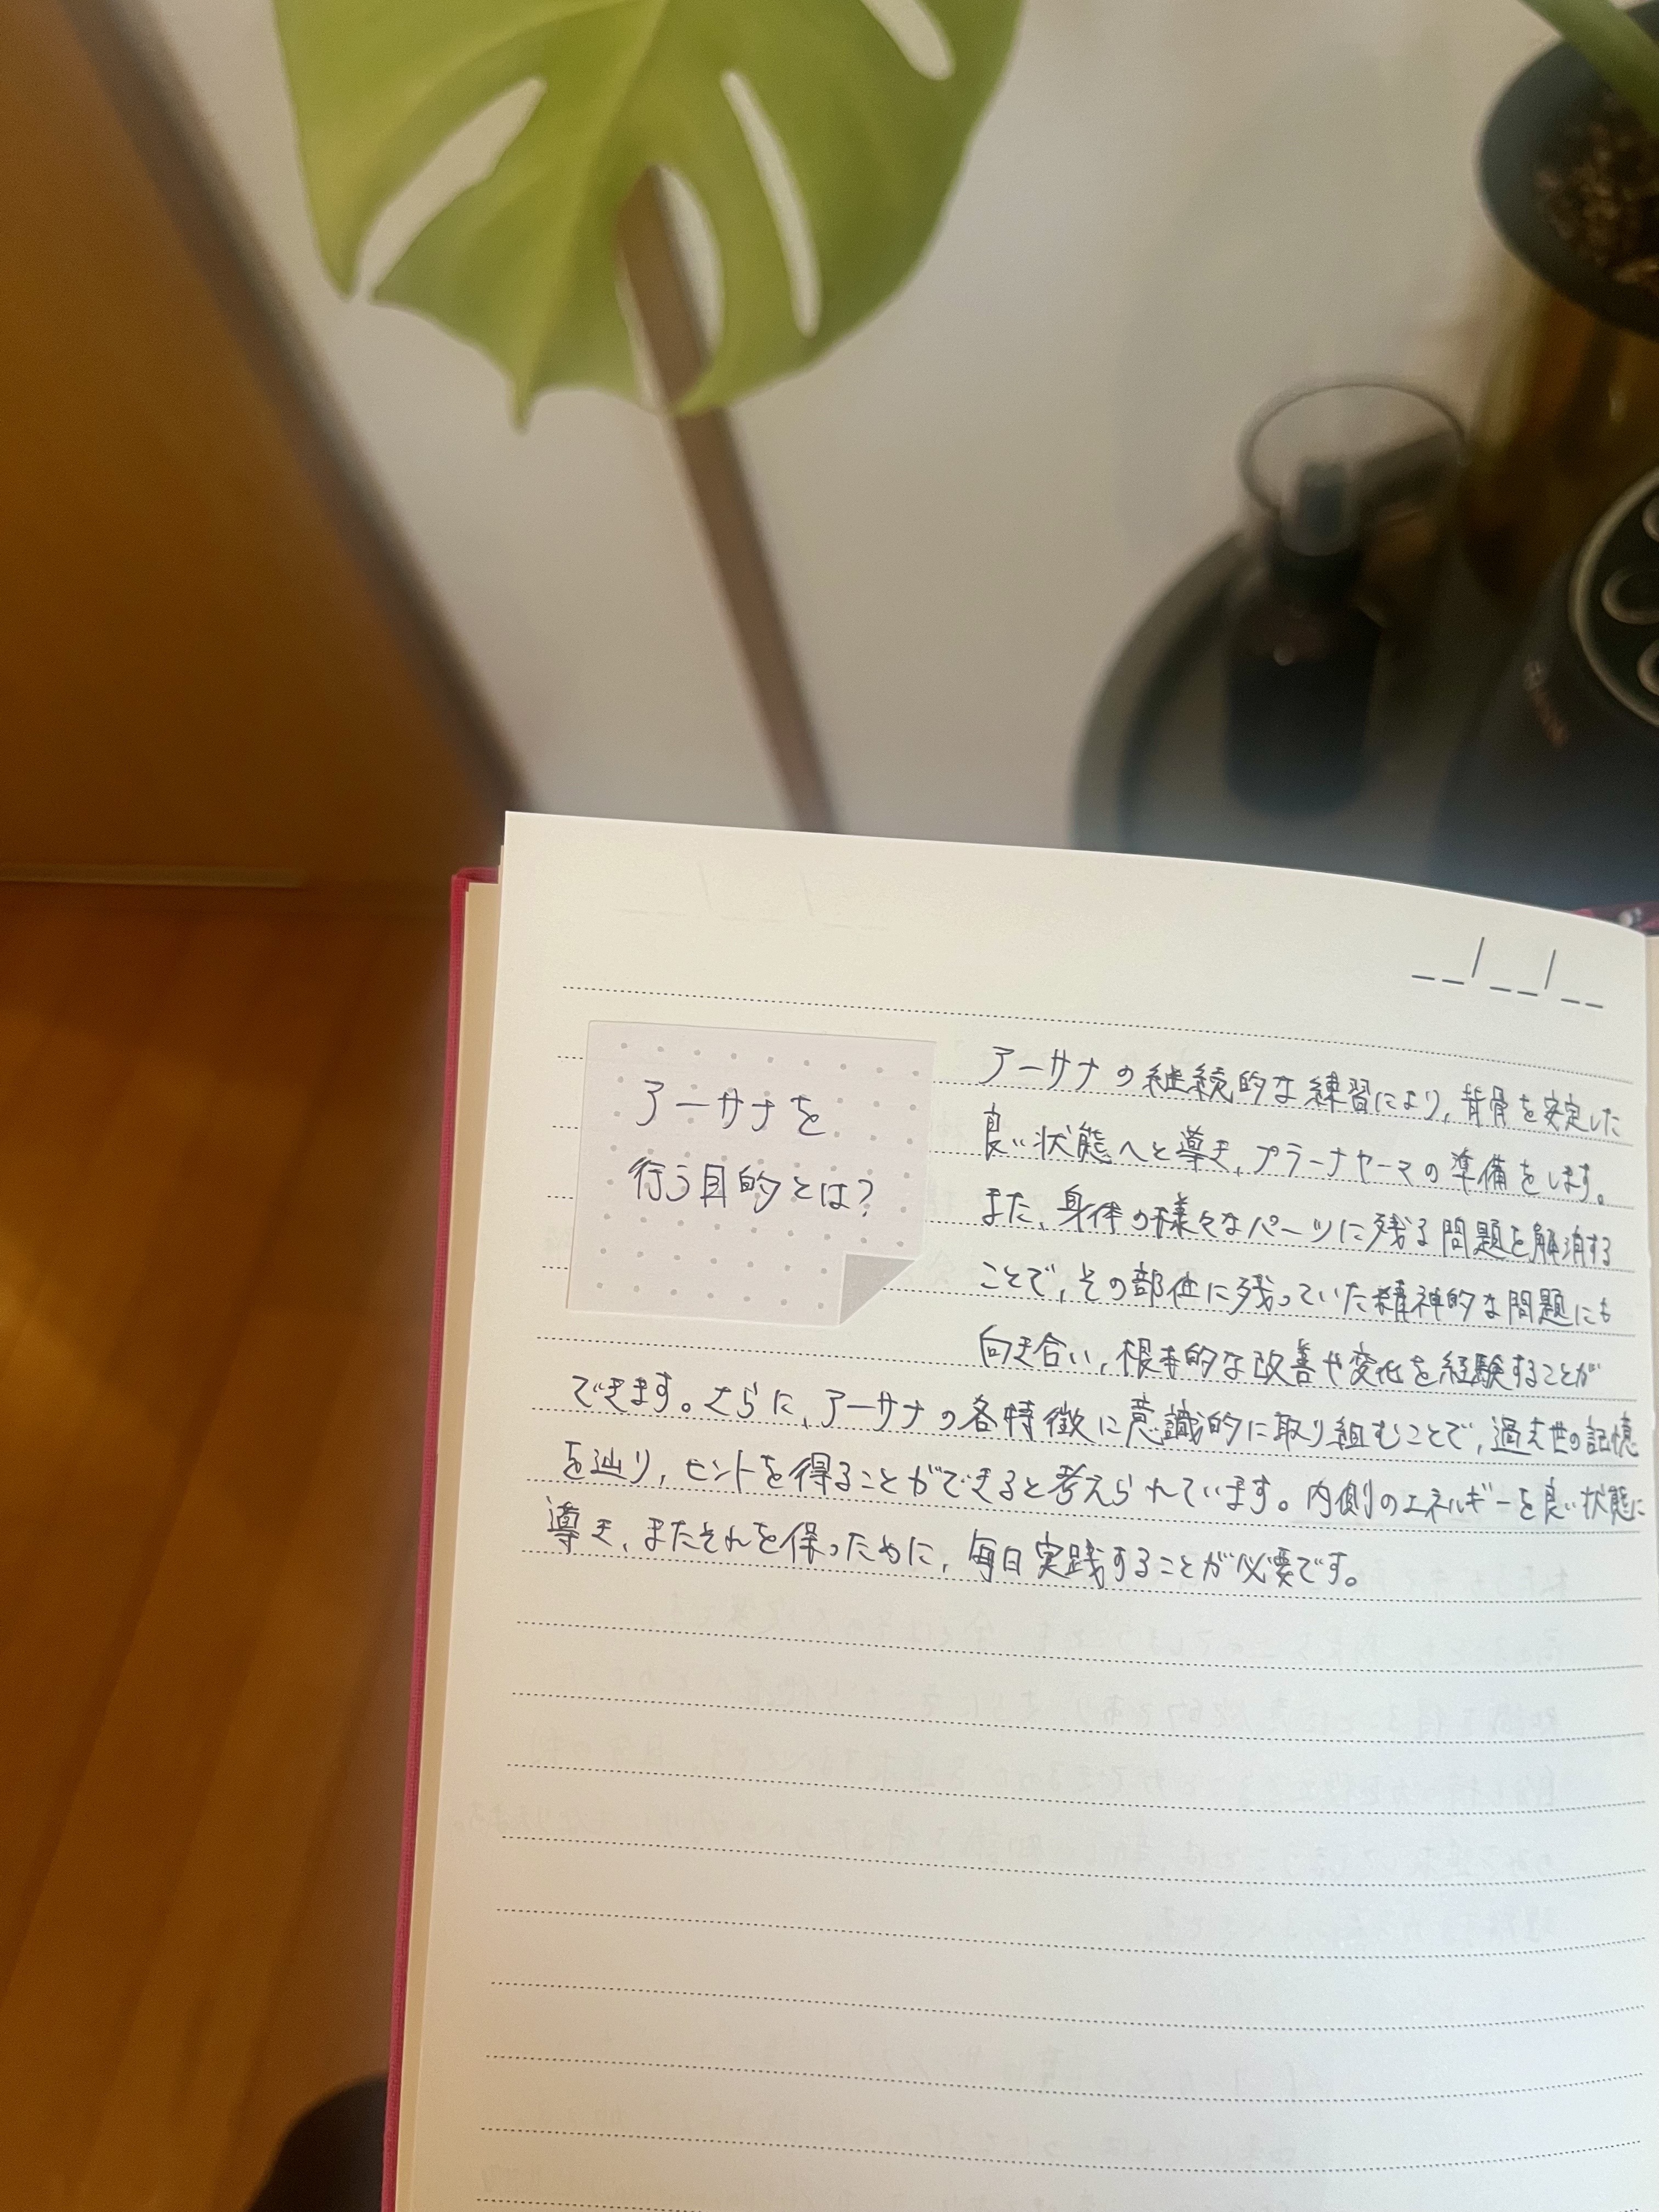 アーサナを
行う目的とは?
アーサナの継続的な練習により,背骨を安定した
良い状態へと導き,プラーナヤーマの準備をします。
また、身体の様々なパーツに残る問題を解消する
ことで,その部位に残っていた精神的な問題にも
向き合い,根本的な改善や変化を経験することが
できます。さらに、アーサナの各特徴に意識的に取り組むことで,過去世の記憶
を辿り,ヒントを得ることができると考えられています。内側のエネルギーを良い状態に
導き、またそれを保つために,毎日実践することが必要です。